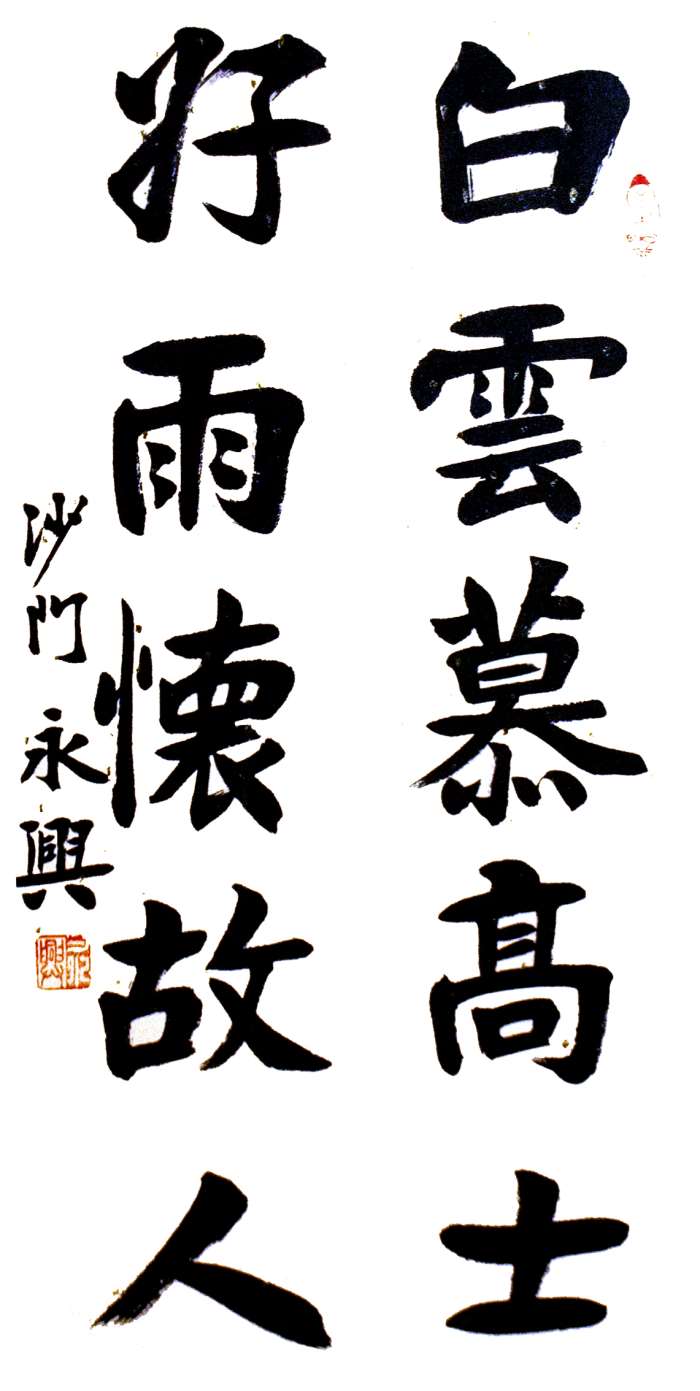 白雲慕髙士
好雨懷故人
沙門永興